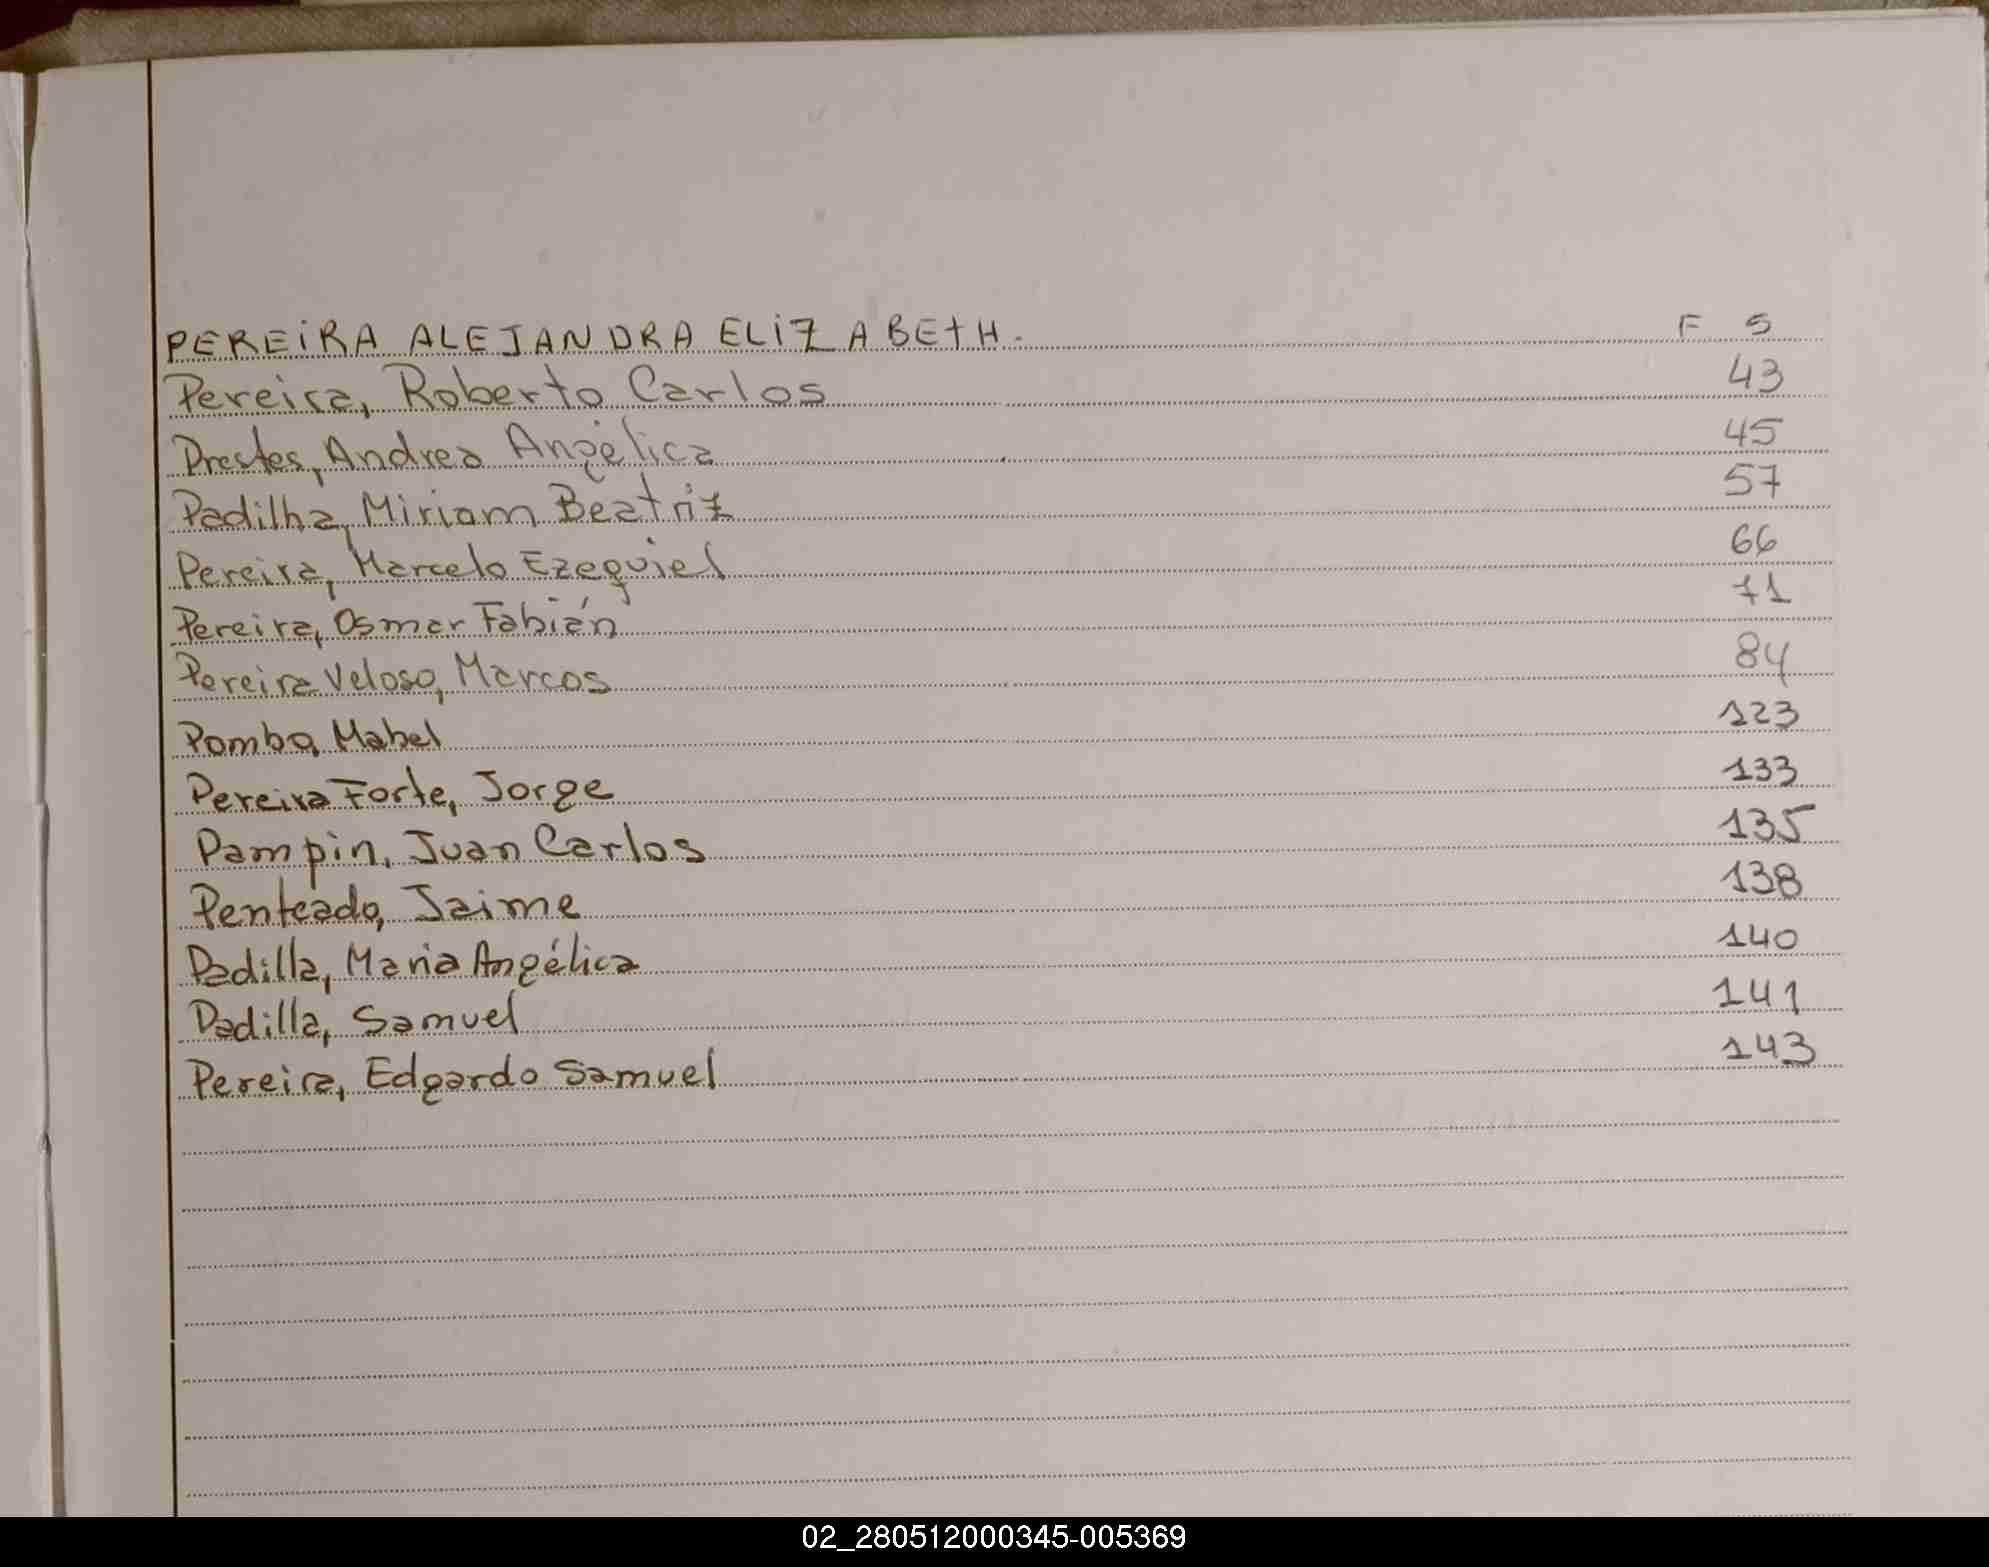 PEREiRA ALEJANDRA ELiZABEtH. F 5
Pereira, Roberto Carlos 43
Prestes, Andrea Angélica 45
Padilha, Miriam Beatriz 57
Pereira, Marcelo Ezequiel 66
Pereira, Osmar Fabián 71
Pereira Veloso, Marcos 84
Pombo, Mabel 123
Pereira Forte, Jorge 133
Pampin, Juan Carlos 135
Penteado, Jaime 138
Padilla, Maria Angélica 140
Padilla, Samuel 141
Pereira, Edgardo Samuel 143
02_280512000345-005369